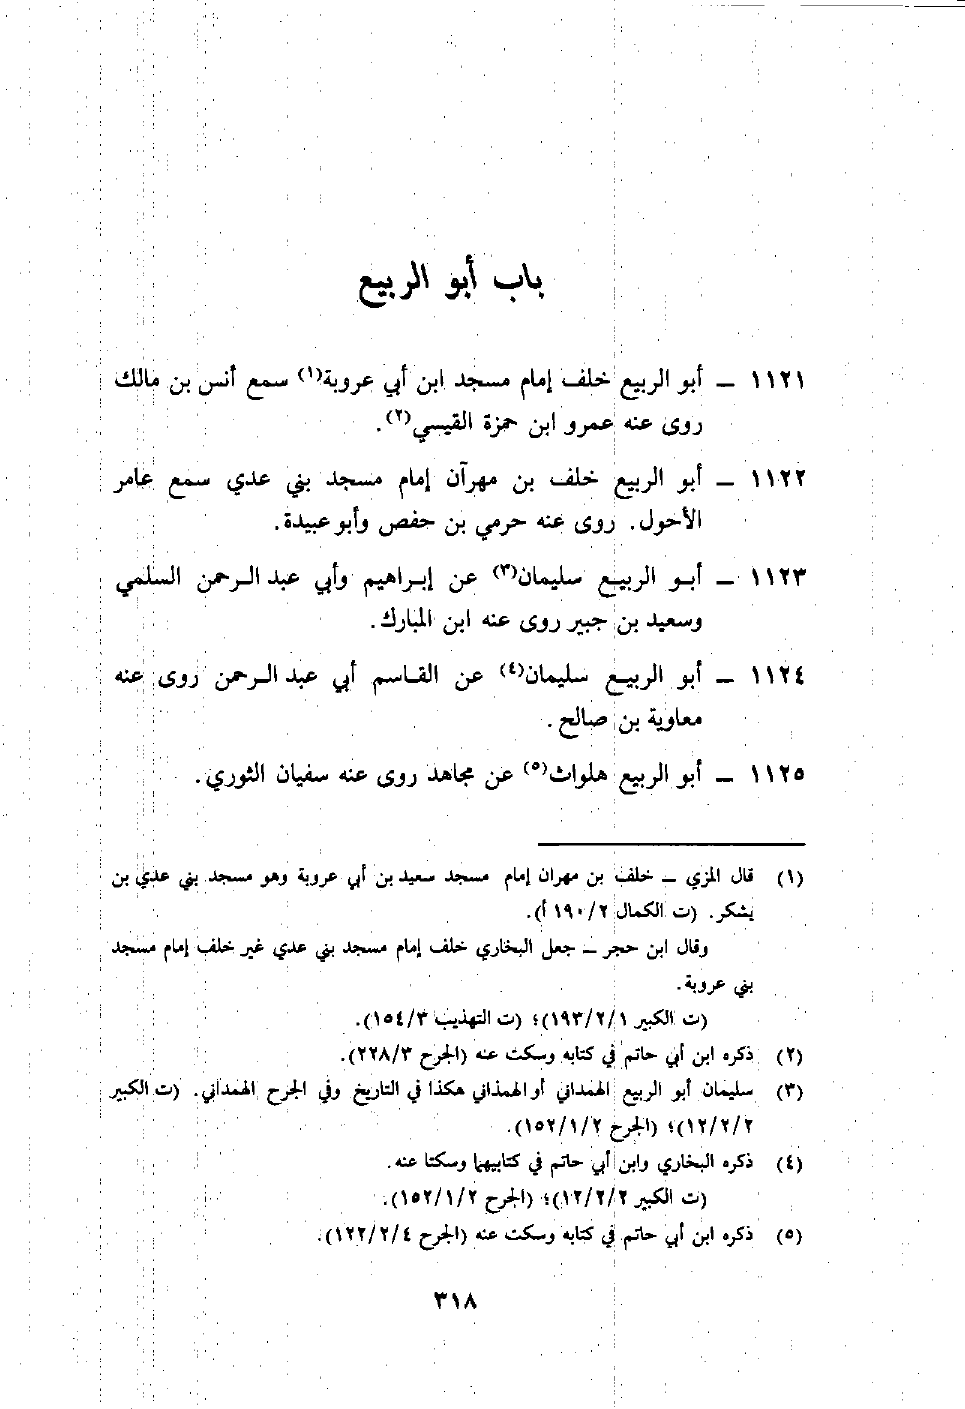 باب أبو الربيع
١١٢١ ــ أبو الربيع خلف إمام مسجد ابن أبي عروبة(١) سمع أنس بن مالك
روى عنه عمرو ابن حمزة القيسي(٢).
١١٢٢ ــ أبو الربيع خلف بن مهرآن إمام مسجد بني عدي سمع عامر
الأحول. روى عنه حرمي بن حفص وأبو عبيدة.
١١٢٣ ــ أبـو الربيـع سليمان(٣) عن إبـراهيم وأبي عبد الـرحمن السلمي
وسعيد بن جبير روى عنه ابن المبارك.
١١٢٤ ــ أبو الربيـع سليمان(٤) عن القـاسم أبي عبد الـرحمن روى عنه
معاوية بن صالح.
١١٢٥ ــ أبو الربيع هلواث(٥) عن مجاهد روى عنه سفيان الثوري.
(١) قال المزي ــ خلف بن مهران إمام مسجد سعيد بن أبي عروبة وهو مسجد بني عدي بن
يشكر. (ت الكمال ١٩٠/٢ أ).
وقال ابن حجر ــ جعل البخاري خلف إمام مسجد بني عدي غير خلف إمام مسجد
بني عروبة.
(ت الكبير ١٩٣/٢/١)؛ (ت التهذيب ١٥٤/٣).
(٢) ذكره ابن أبي حاتم في كتابه وسكت عنه (الجرح ٢٢٨/٣).
(٣) سليمان أبو الربيع الهمداني أو الهمذاني هكذا في التاريخ وفي الجرح الهمداني. (ت الكبير
١٢/٢/٢)؛ (الجرح ١٥٢/١/٢).
(٤) ذكره البخاري وابن أبي حاتم في كتابيهما وسكتا عنه.
(ت الكبير ١٢/٢/٢)؛ (الجرح ١٥٢/١/٢).
(٥) ذكره ابن أبي حاتم في كتابه وسكت عنه (الجرح ١٢٢/٢/٤).
٣١٨